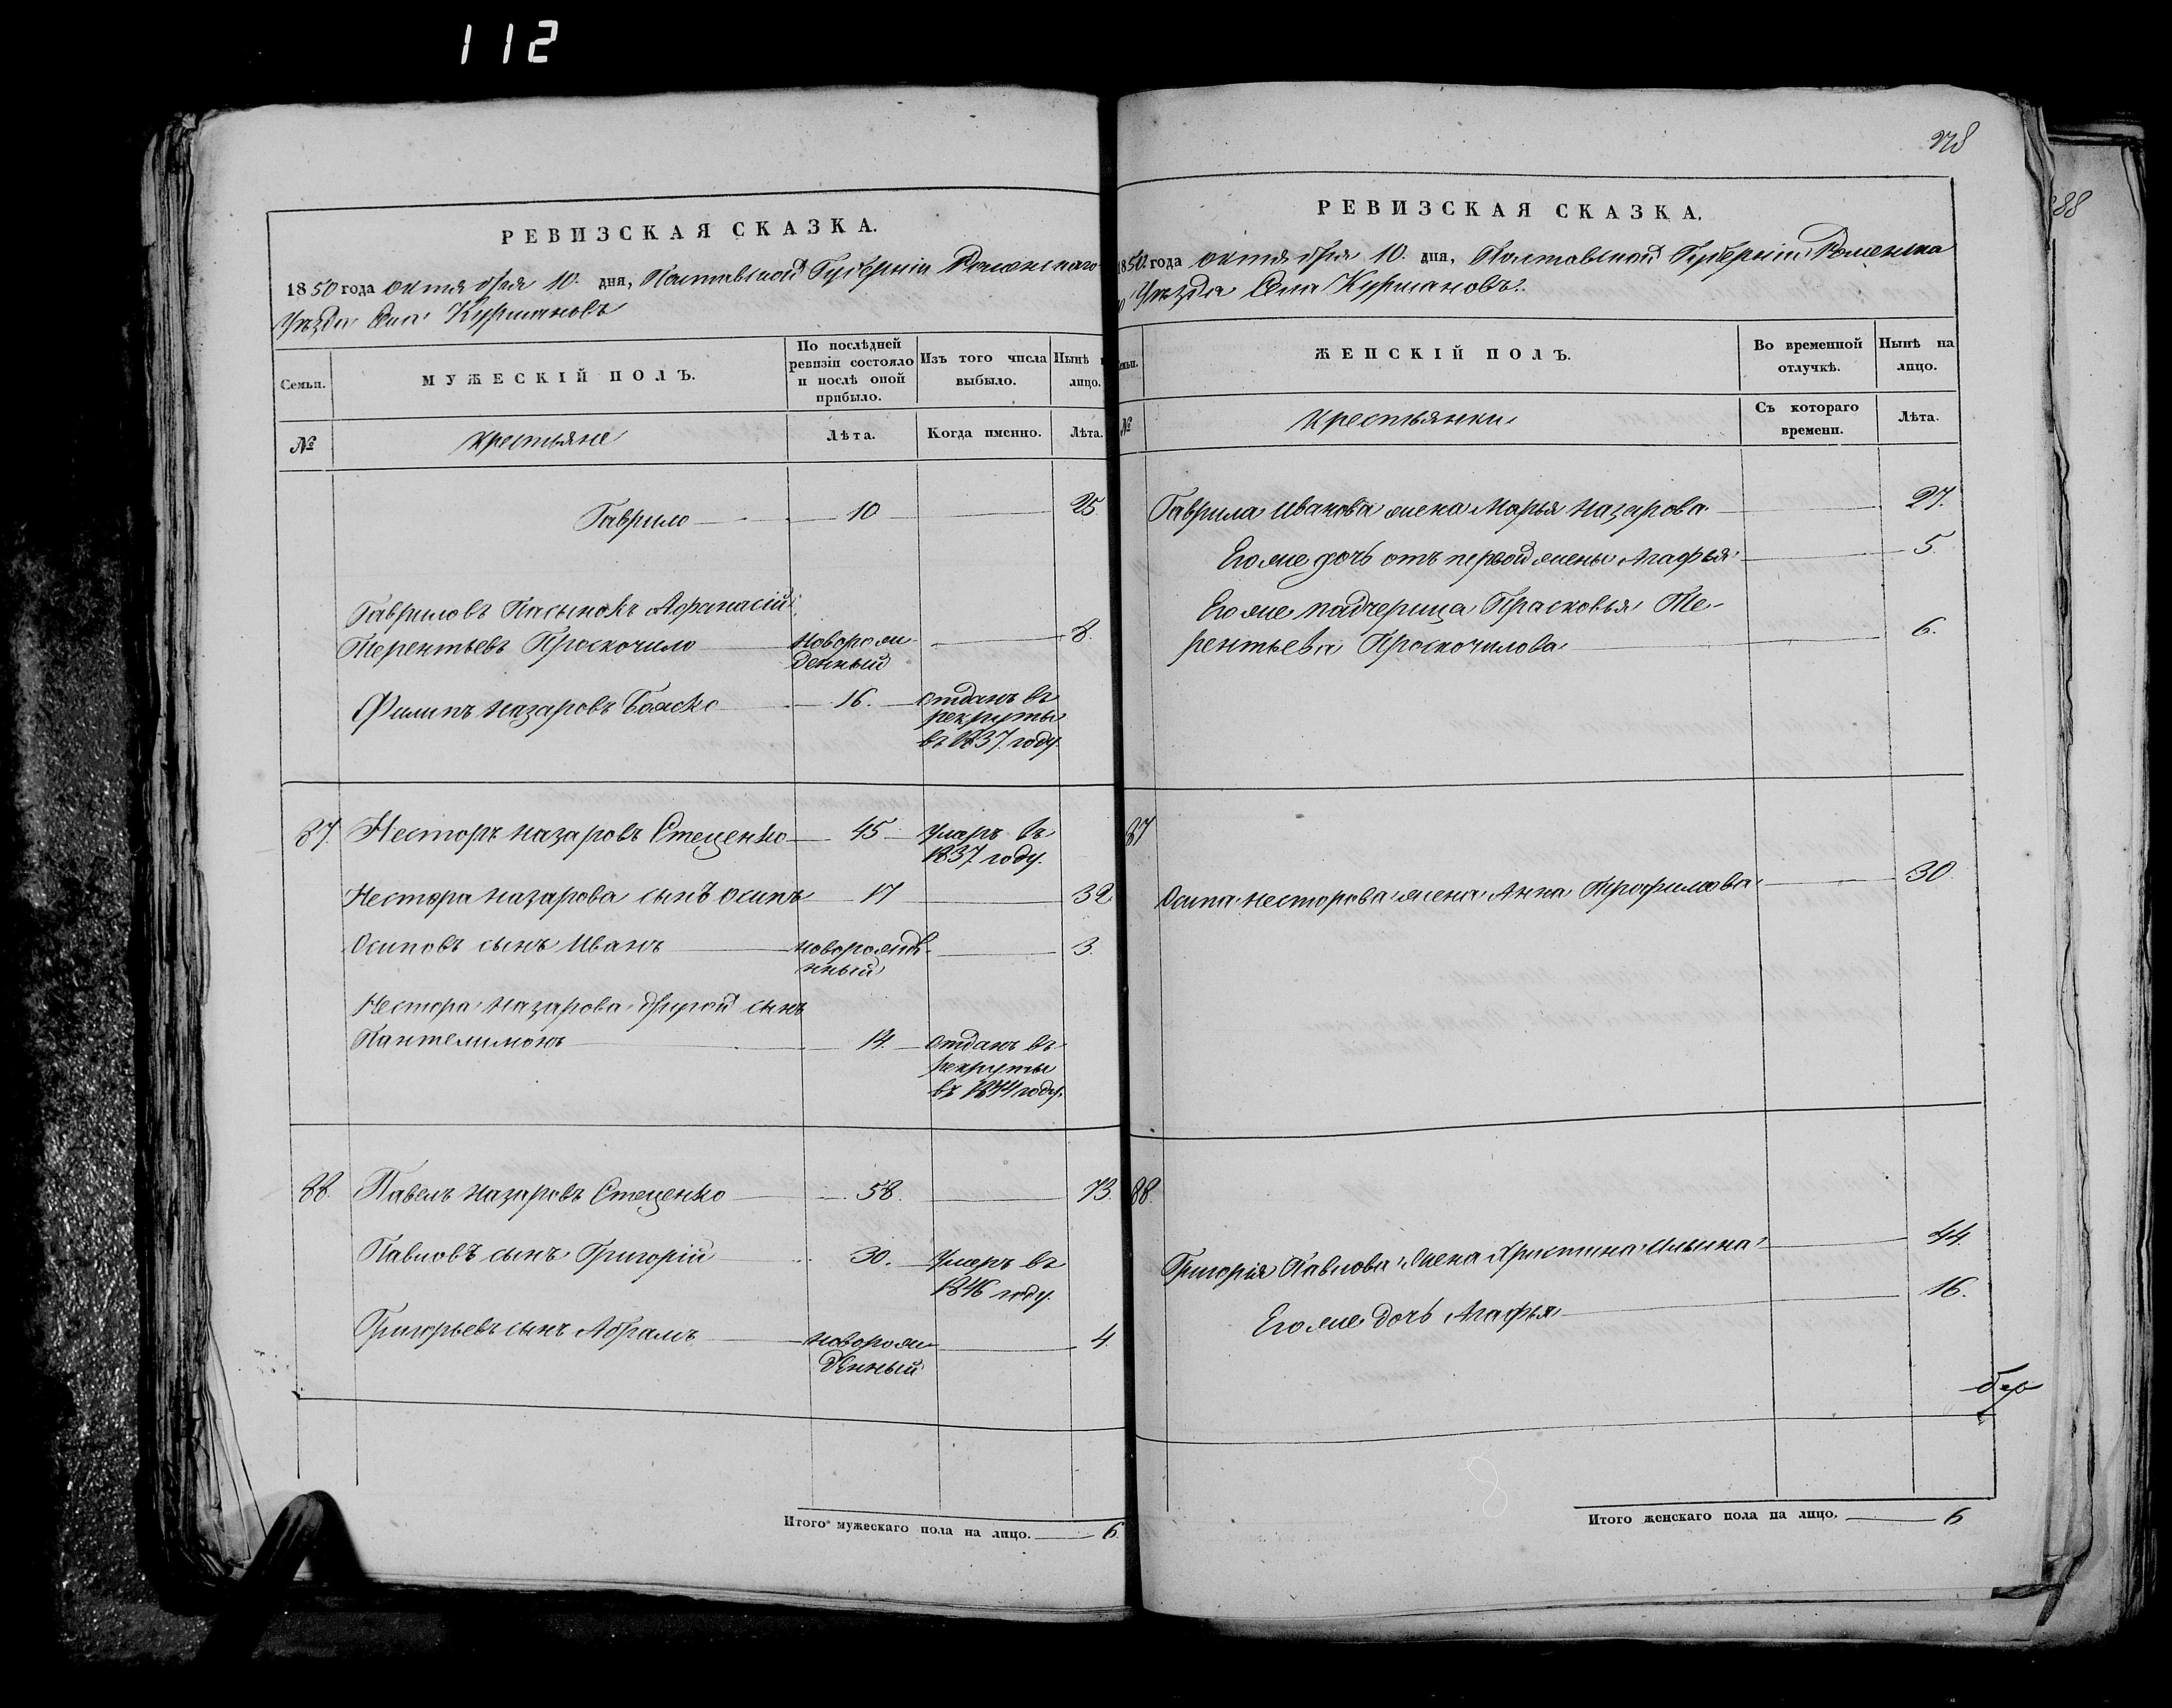 112
РЕВИЗСКАЯ СКАЗКА.
1850 года октября 10. дня, Полтавской Губерніи Роменскаго
Уѣзда Села Курмановъ
Семьи.
МУЖЕСКІЙ ПОЛЪ.
По послѣдней ревизіи состояло и послѣ оной прибыло.
Изъ того числа выбыло.
Нынѣ на лицо.
№
Крестьяне
Лѣта.
Когда именно.
Лѣта.
Гаврило 10 25
Гавриловъ Пасынокъ Афанасій
Терентьевъ Проскочило новорож- 8.
денный
Филипъ Назаровъ Божко 16. отданъ въ
рекруты
въ 1837. году.
87. Несторъ Назаровъ Стеценко 45 умеръ въ
1837. году.
Нестора Назарова сынъ Осипъ 17 32
Осиповъ сынъ Иванъ новорожде- 3.
нный
Нестора Назарова другой сынъ
Пантелимонъ 14. отданъ въ
рекруты
въ 1844 году.
88. Павелъ Назаровъ Стеценко 58. 73.
Павловъ сынъ Григорій 30. умеръ въ
1846 году.
Григорьевъ сынъ Абрамъ новорож- 4.
денный
Итого мужескаго пола на лицо. 6.
278
РЕВИЗСКАЯ СКАЗКА.
1850. года октября 10. дня, Полтавской Губерніи Роменска
го Уѣзда Села Курмановъ.
Семьи.
ЖЕНСКІЙ ПОЛЪ.
Во временной отлучкѣ.
Нынѣ на лицо.
№
Крестьянки
Съ котораго времени.
Лѣта.
Гаврила Иванова жена Марья Назарова 27.
Его же дочь отъ первой жены Агафья 5.
Его же падчерица Прасковья Те-
рентьева Проскочилова 6.
87
Осипа Несторова жена Анна Трофимова 30
88.
Григорія Павлова жена Христина Ильина 44.
Его же дочь Агафья 16.
Итого женскаго пола на лицо. 6
88